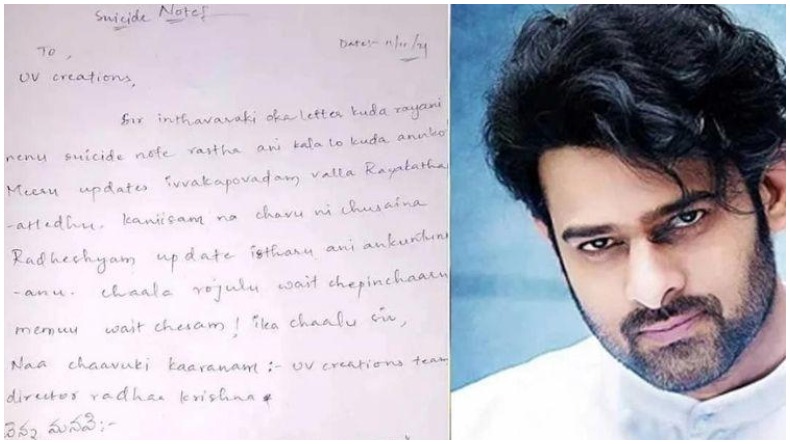 Suicide Notes
Date:- 11/11/21
To,
UV creations,
Sir inthavaraki oka letter kuda rayani
nenu suicide note rastha ani kala lo kuda anuko
Meeru updates ivvakapovadam valla Rayakatha
-attledhu. Kaniisam na chavu ni chusaina
Radheshyam update istharu ani ankuntunn
-anu. chaala rojulu wait chepinchaaru
memuu wait chesam! ika chaalu sir,
Naa chaavuki kaaranam :- UV creations team
director radhaa krishna
మనవి:-